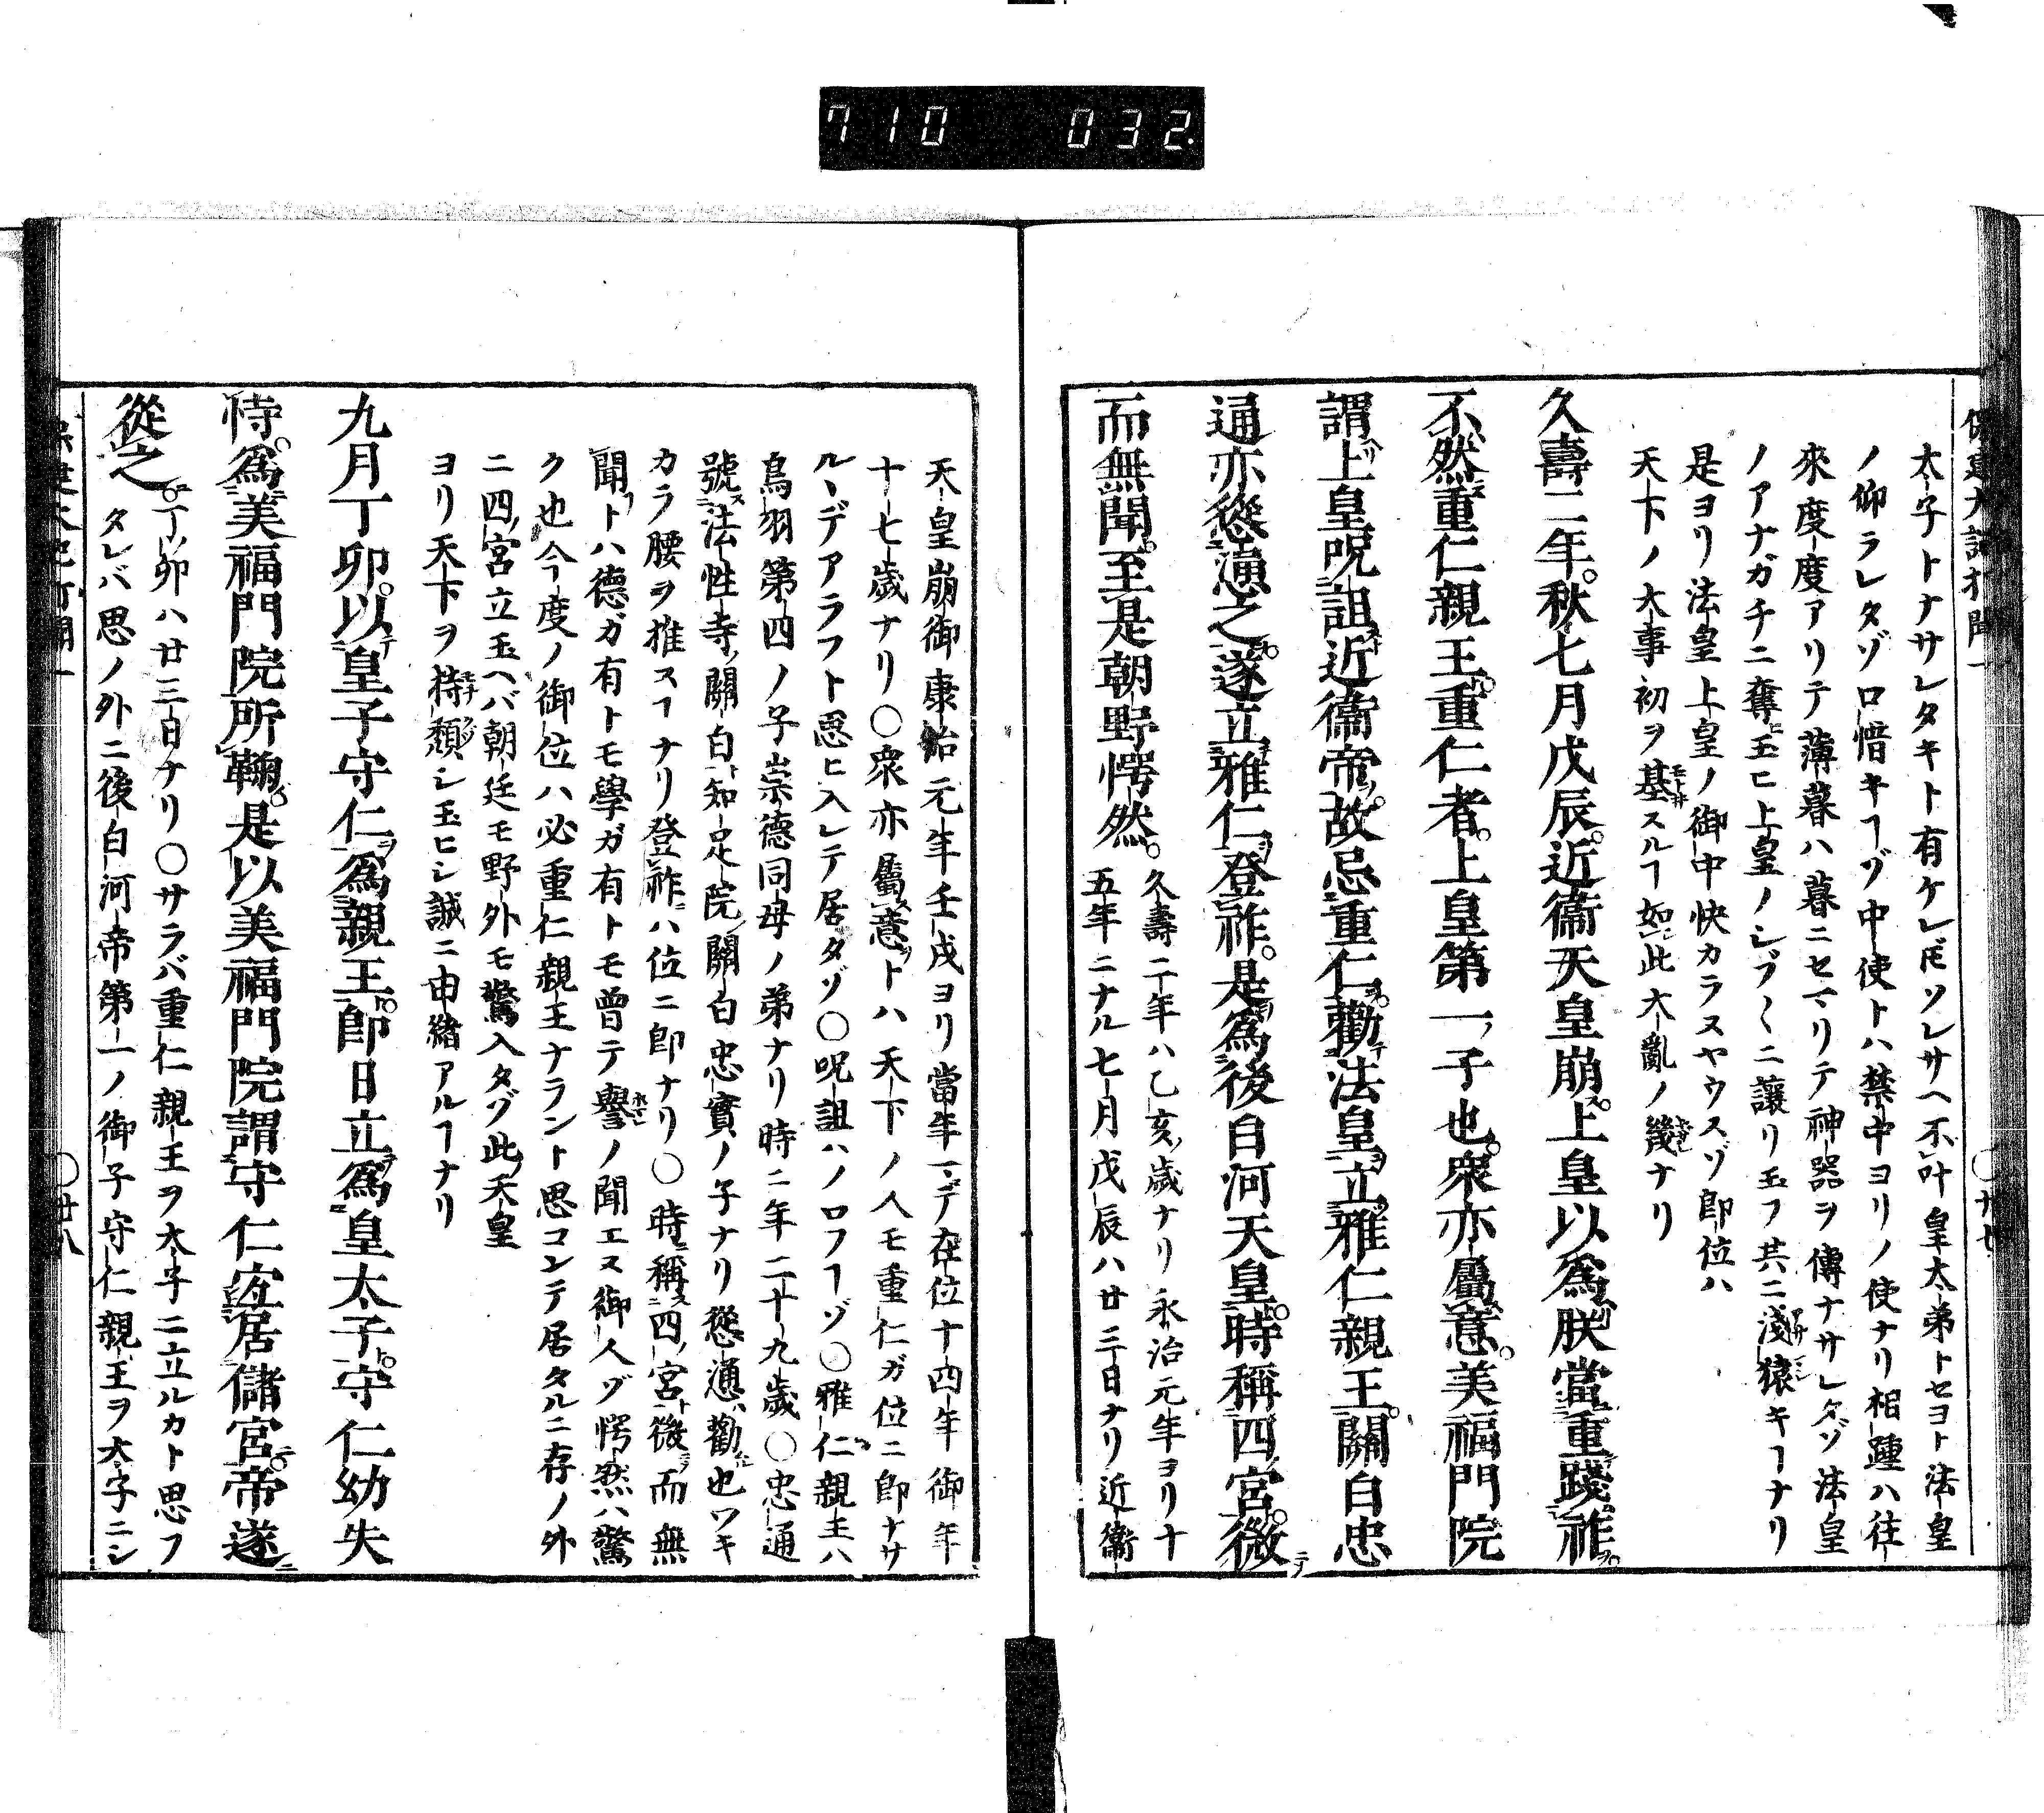 710 032.
太子トナサレタキト有ケレ𪜈ソレサヘ不叶皇太弟トセヨト法皇
ノ仰ラレタゾロ惜キヿゾ中使トハ禁中ヨリノ使ナリ相踵ハ往
來度度アリテ薄暮ハ暮ニセマリテ神器ヲ傳ナサレタゾ法皇
ノアナガチニ奪玉ヒ上皇ノシブ〱ニ讓リ玉フ共ニ淺猿キヿナリ
是ヨリ法皇上皇ノ御中快カラスヤウスゾ即位ハ
天下ノ大事初ヲ基スルヿ如此大亂ノ幾ナリ
久壽二年秋七月戊辰近衞天皇崩上皇以爲朕當重踐祚
不然重仁親王重仁者上皇第一子也衆亦屬意美福門院
謂上皇呪詛近衞帝故忌重仁勸法皇立雅仁親王關白忠
通亦慫慂之遂立雅仁登祚是爲後白河天皇時稱四宮微
而無聞至是朝野愕然
久壽二年ハ乙亥歲ナリ永治元年ヨリ十
五年ニナル七月戊辰ハ廿三日ナリ近衞
天皇崩御康治元年壬戌ヨリ當年マデ在位十四年御年
十七歲ナリ〇衆亦屬意トハ天下ノ人モ重仁ガ位ニ即ナサ
ルヽデアラフト思ヒ入レテ居タゾ〇呪詛ハノロフヿゾ〇雅仁親王ハ
鳥羽第四ノ子崇德同母ノ弟ナリ時ニ年二十九歲〇忠通
號法性寺關白知足院關白忠實ノ子ナリ慫慂勸也ワキ
カラ腰ヲ推スヿナリ登祚ハ位ニ即ナリ〇時稱四宮微而無
聞トハ德ガ有トモ學ガ有トモ曾テ譽ノ聞エヌ御人ゾ愕然ハ驚
ク也今度ノ御位ハ必重仁親王ナラント思コンテ居タルニ存ノ外
ニ四宮立玉ヘバ朝廷モ野外モ驚入タゾ此天皇
ヨリ天下ヲ持頽シ玉ヒシ誠ニ由緖アルヿナリ
九月丁卯以皇子守仁爲親王即日立爲皇太子守仁幼失
恃爲美福門院所鞠是以美福門院謂守仁宜居儲宮帝遂
從之
丁卯ハ廿三日ナリ〇サラバ重仁親王ヲ太子ニ立ルカト思フ
タレバ思ノ外ニ後白河帝第一ノ御子守仁親王ヲ太子ニシ
〇廿八